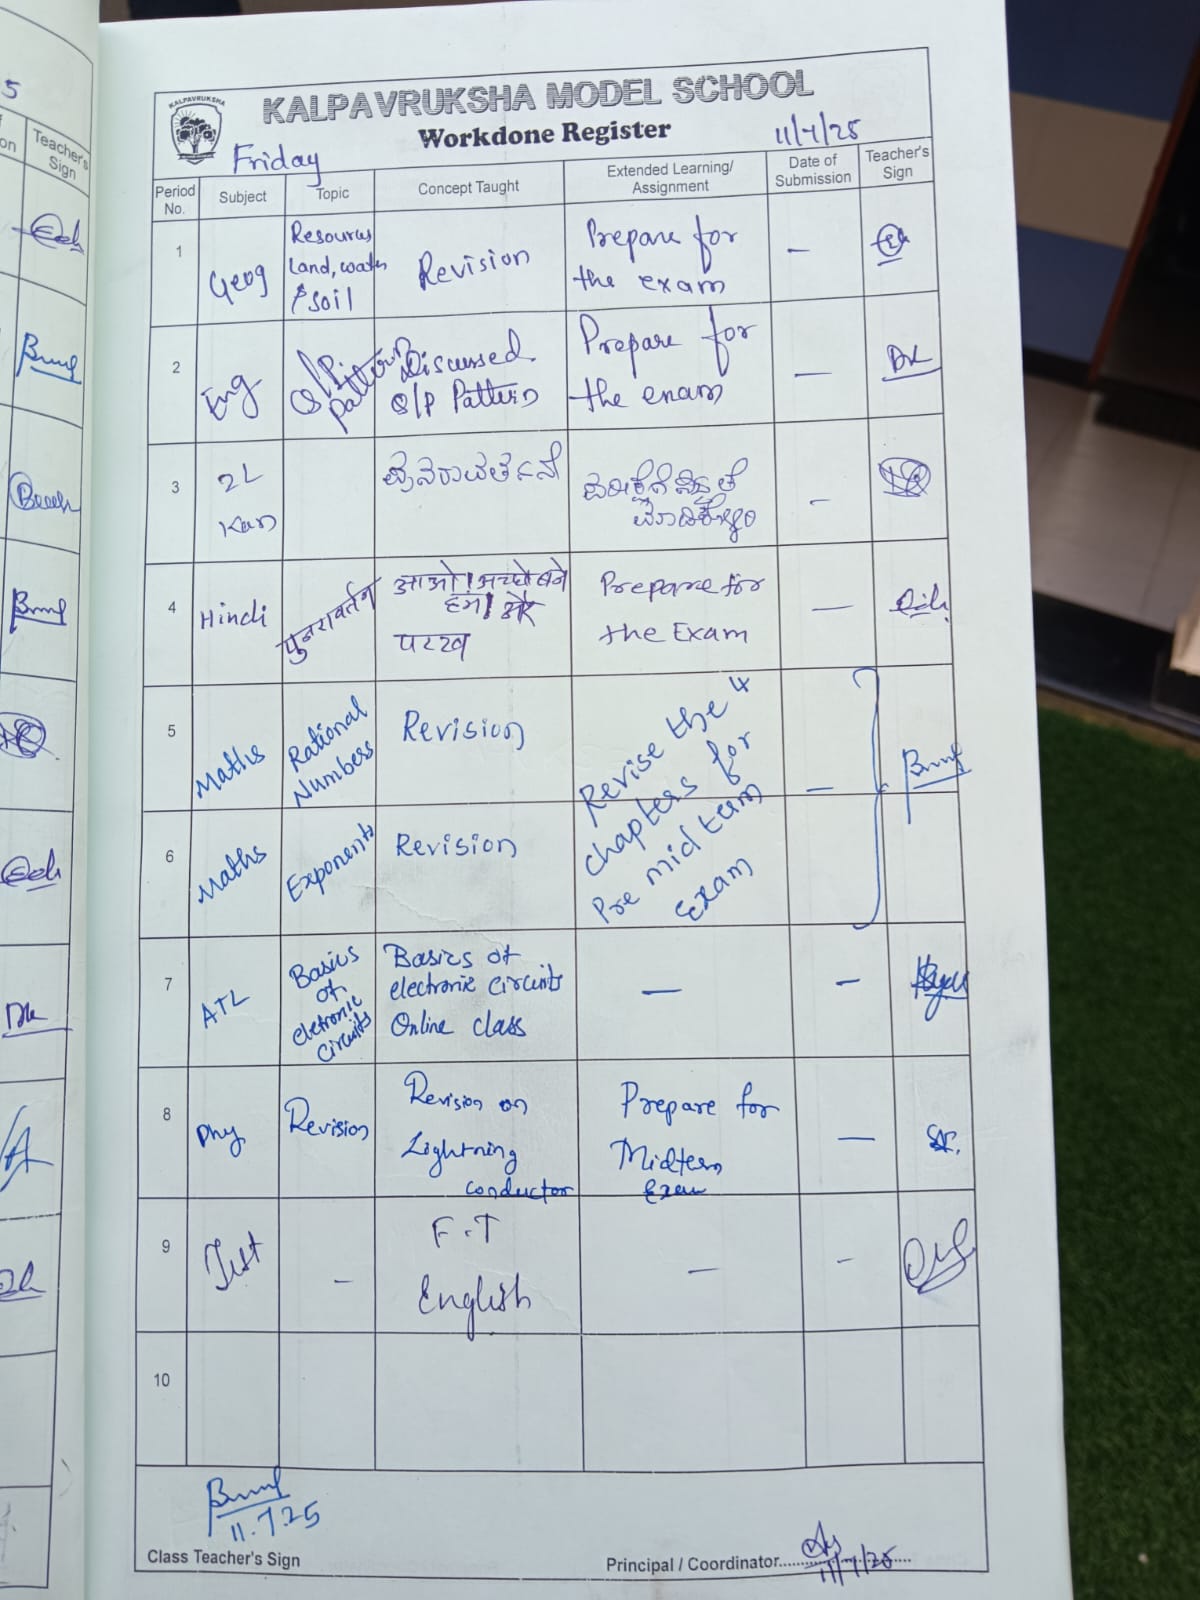 5
on
Teacher's
Sign
KALPAVRUKSHA
KALPAVRUKSHA MODEL SCHOOL
Workdone Register
Friday
11/7/25
Period No.
Subject
Topic
Concept Taught
Extended Learning/ Assignment
Date of Submission
Teacher's Sign
1
Geog
Resources
land, water
& soil
Revision
Prepare for
the exam
—
2
Eng
Q/P
Pattern
Discussed
Q/P Pattern
Prepare for
the exam
—
3
2L
Kan
–
4
Hindi
पुनरावर्तन
परख
Prepare for
the Exam
—
5
Maths
Rational
Numbers
Revision
Revise the 4
chapters for
Pre mid term
Exam
—
6
Maths
Exponents
Revision
7
ATL
Basics
of
eletronic
circuits
Basics of
electronic circuits
Online class
—
–
8
Phy
Revision
Revision on
Lightning
conductor
Prepare for
Midterm
Exam
—
9
Test
–
F.T
English
—
–
10
11.7.25
Class Teacher's Sign
Principal / Coordinator
11/7/25